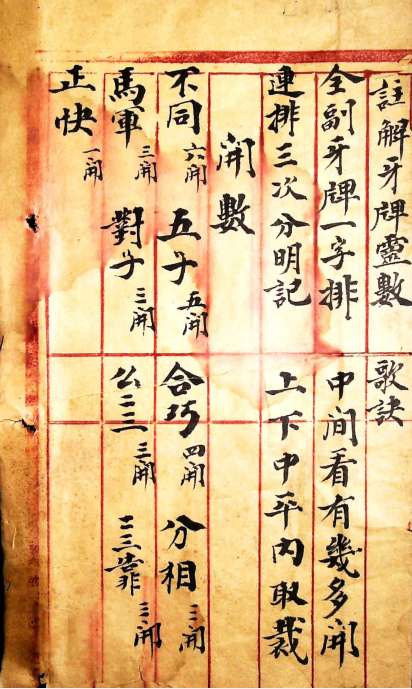 註解牙牌靈數 歌訣
全副牙牌一字排 中间看有幾多開
連排三次分明記 上下中平內取裁
開數
不同六開 五子五開 合巧四開 分相三開
馬軍三開 對子三開 么二三三開 二三靠三開
正快一開